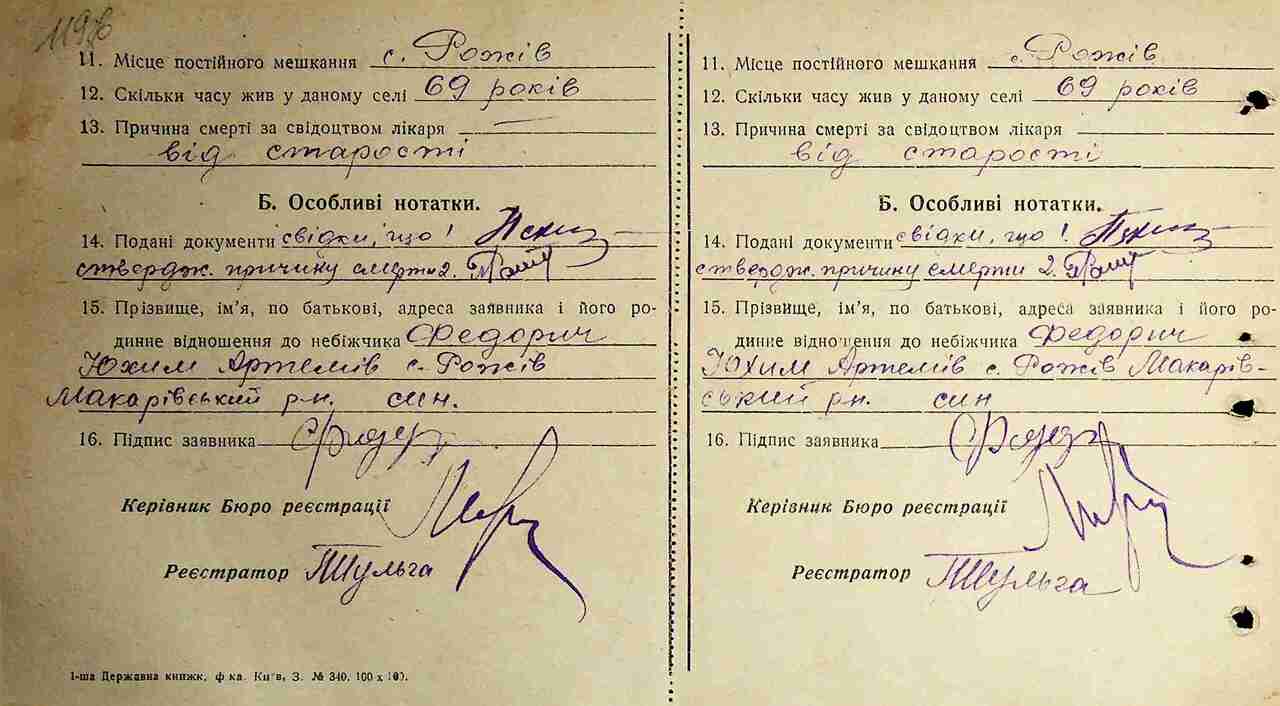 119
11. Місце постійного мешкання с. Рожів
12. Скільки часу жив у даному селі 69 років
13. Причина смерті за свідоцтвом лікаря —
від старості
Б. Особливі нотатки.
14. Подані документи свідки, що 1.
ствердж. причину смерти 2.
15. Прізвище, ім’я, по батькові, адреса заявника і його ро-
динне відношення до небіжчика Федорич
Юхим Артемів с. Рожів
Макарівський р-н. син.
16. Підпис заявника
Керівник Бюро реєстрації
Реєстратор Шульга
1-ша Державна книжк. ф-ка. Київ, З. № 340. 100 x 100.
11. Місце постійного мешкання с. Рожів
12. Скільки часу жив у даному селі 69 років
13. Причина смерті за свідоцтвом лікаря
від старості
Б. Особливі нотатки.
14. Подані документи свідки, що 1.
ствердж. причину смерти 2.
15. Прізвище, ім’я, по батькові, адреса заявника і його ро-
динне відношення до небіжчика Федорич
Юхим Артемів с. Рожів Макарів-
ський р-н. син
16. Підпис заявника
Керівник Бюро реєстрації
Реєстратор Шульга